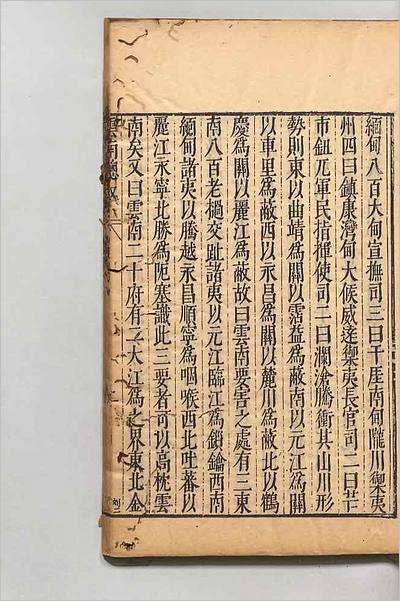 緬甸八百大甸宣撫司三曰干崖南甸隴川禦夷
州四曰鎮康灣甸大候威遠禦夷長官司二曰芒
市鈕兀軍民指揮使司二曰瀾滄騰衝其山川形
勢則東以曲靖為關以霑益為蔽南以元江為關
以車里為蔽西以永昌為關以麓川為蔽北以鶴
慶為關以麗江為蔽故曰雲南要害之處有三東
南八百老撾交趾諸夷以元江臨江為鎖鑰西南
緬甸諸夷以騰越永昌順寧為咽喉西北吐蕃以
麗江永寧北勝為阨塞識此三要者可以高枕雲
南矣又曰雲南二十府有二大江為之界東北金